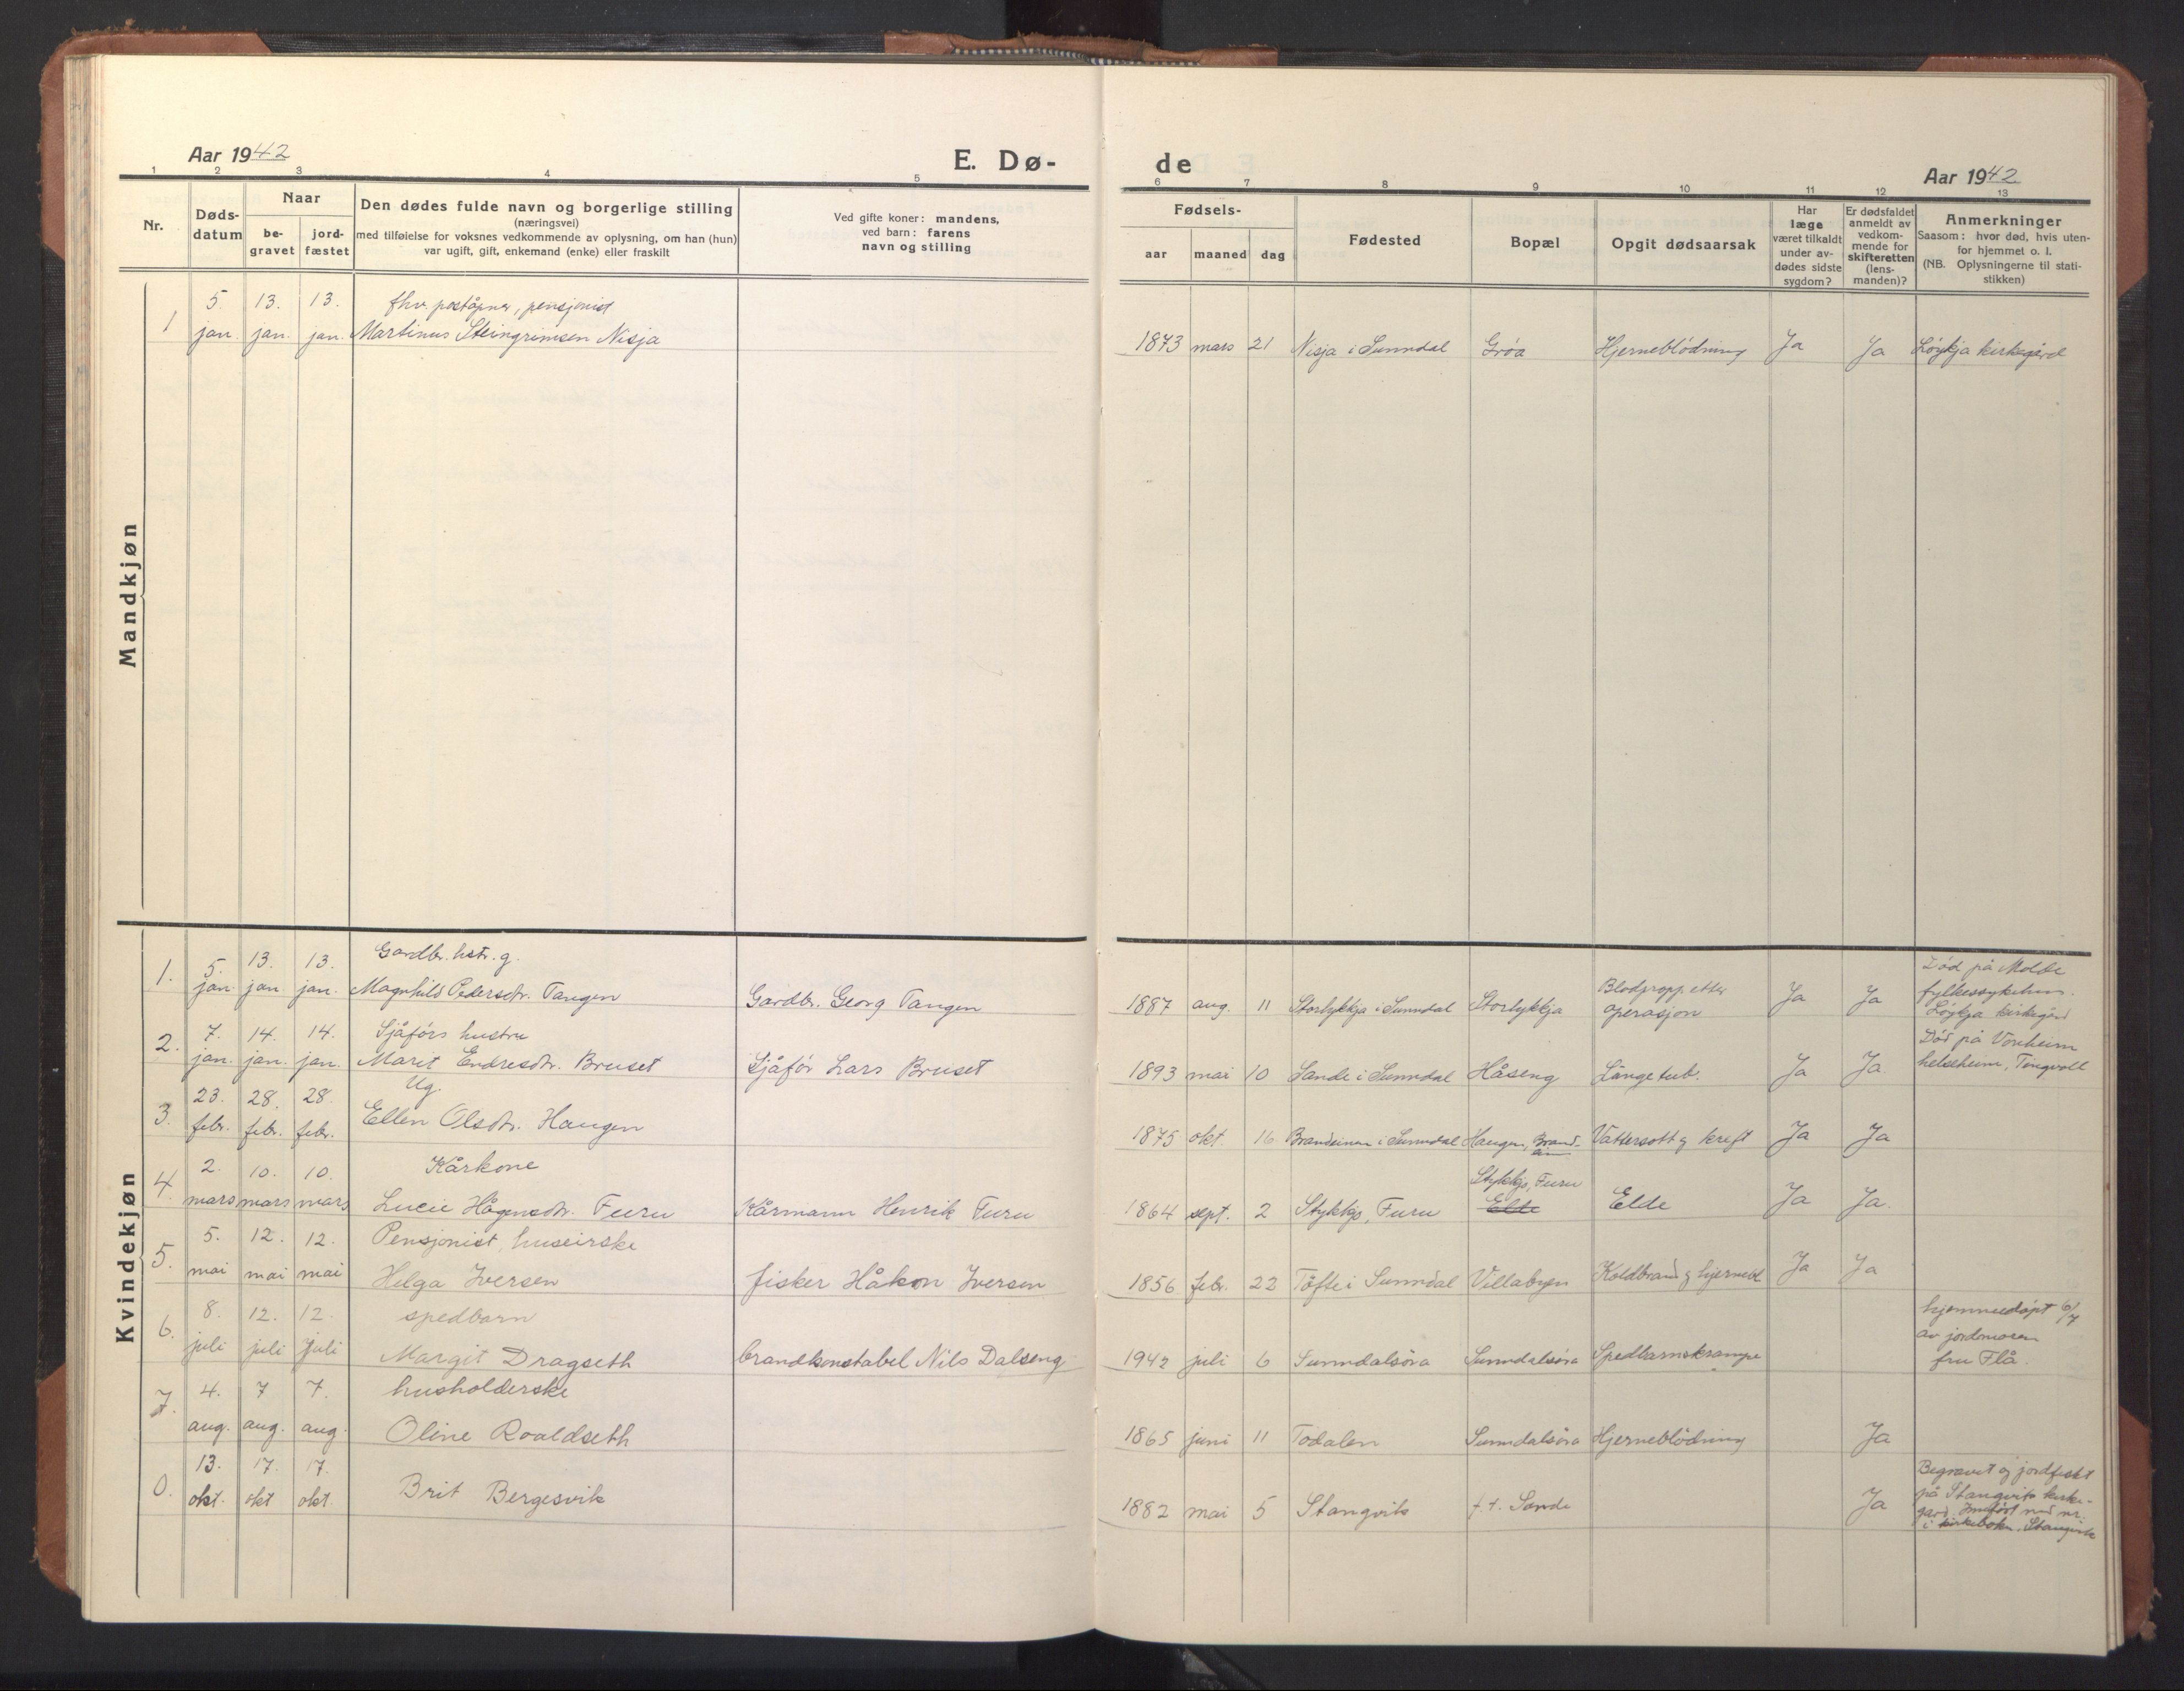 Aar 1942
E. Dø-
de
Aar 1942
1 2 3 4 5 6 7 8 9 10 11 12 13
Nr.
Døds-
datum
Naar
be-
gravet
jord-
fæstet
Den dødes fulde navn og borgerlige stilling
(næringsvei)
med tilføielse for voksnes vedkommende av oplysning, om han (hun)
var ugift, gift, enkemand (enke) eller fraskilt
Ved gifte koner: mandens,
ved barn: farens
navn og stilling
Fødsels-
aar
maaned
dag
Fødested
Bopæl
Opgit dødsaarsak
Har
læge
været tilkaldt
under av-
dødes sidste
sygdom?
Er dødsfaldet
anmeldt av
vedkom-
mende for
skifteretten
(lens-
manden)?
Anmerkninger
Saasom: hvor død, hvis uten-
for hjemmet o. l.
(NB. Oplysningerne til stati-
stikken)
Mandkjøn
5. 13. 13. fhv. poståpner, pensjonist
1 jan. jan. jan. Martinus Steingrimsen Nisja 1873 mars 21 Nisja i Sunndal Grøa Hjerneblödning Ja Ja Løykja kirkegård
Kvindekjøn
Gardbr. hstr. g.
1. 5. 13. 13.
jan. jan. jan. Magnhild Pedersdtr. Tangen Gardbr. Georg Tangen 1887 aug. 11 Storlykkja i Sunndal Storlykkja Blodpropp etter
operasjon Ja Ja Död på Molde
fylkessykehus.
Løykja kirkegård
7. 14. 14. Sjåförs hustru
2. jan. jan. jan. Marit Endresdtr. Bruset Sjåför Lars Bruset 1893 mai 10 Sande i Sunndal Håseng Lungetub. Ja Ja Död på Vonheim
helseheim, Tingvoll
23. 28. 28. Ug.
3. febr. febr. febr. Ellen Olsdtr. Haugen 1875 okt. 16 i Sunndal Haugen, Vattersott og kreft Ja Ja
2. 10. 10. Kårkone
4. mars mars mars Lucie Hågensdtr. Furu Kårmann Henrik Furu 1864 sept. 2 Stykkjo, Furu Stykkjo, Furu
Elde Elde Ja Ja.
5. 12. 12. Pensjonist, huseirske
5. mai mai mai Helga Iversen fisker Håkon Iversen 1856 febr. 22 Töfte i Sunndal Villabyen Koldbrand og hjernebl Ja Ja
8. 12. 12. spedbarn
6. juli juli juli Margit Dragseth brandkonstabel Nils Dalseng 1942 juli 6 Sunndalsöra Sunndalsöra Spedbarnskrampe hjemmedöpt 6/7
av jordmoren
fru Flå.
4. 7 7. husholderske
7. aug. aug. aug. Oline Roaldseth 1865 juni 11 Todalen Sunndalsöra Hjerneblödning Ja
13. 17. 17.
0. okt. okt okt. Brit Bergesvik 1882 mai 5 Stangvik f. t. Sande Ja Begravet og jordfestet
på Stangvik kirke-
gard. Innfört med nr.
i kirkeboken, Stangvik